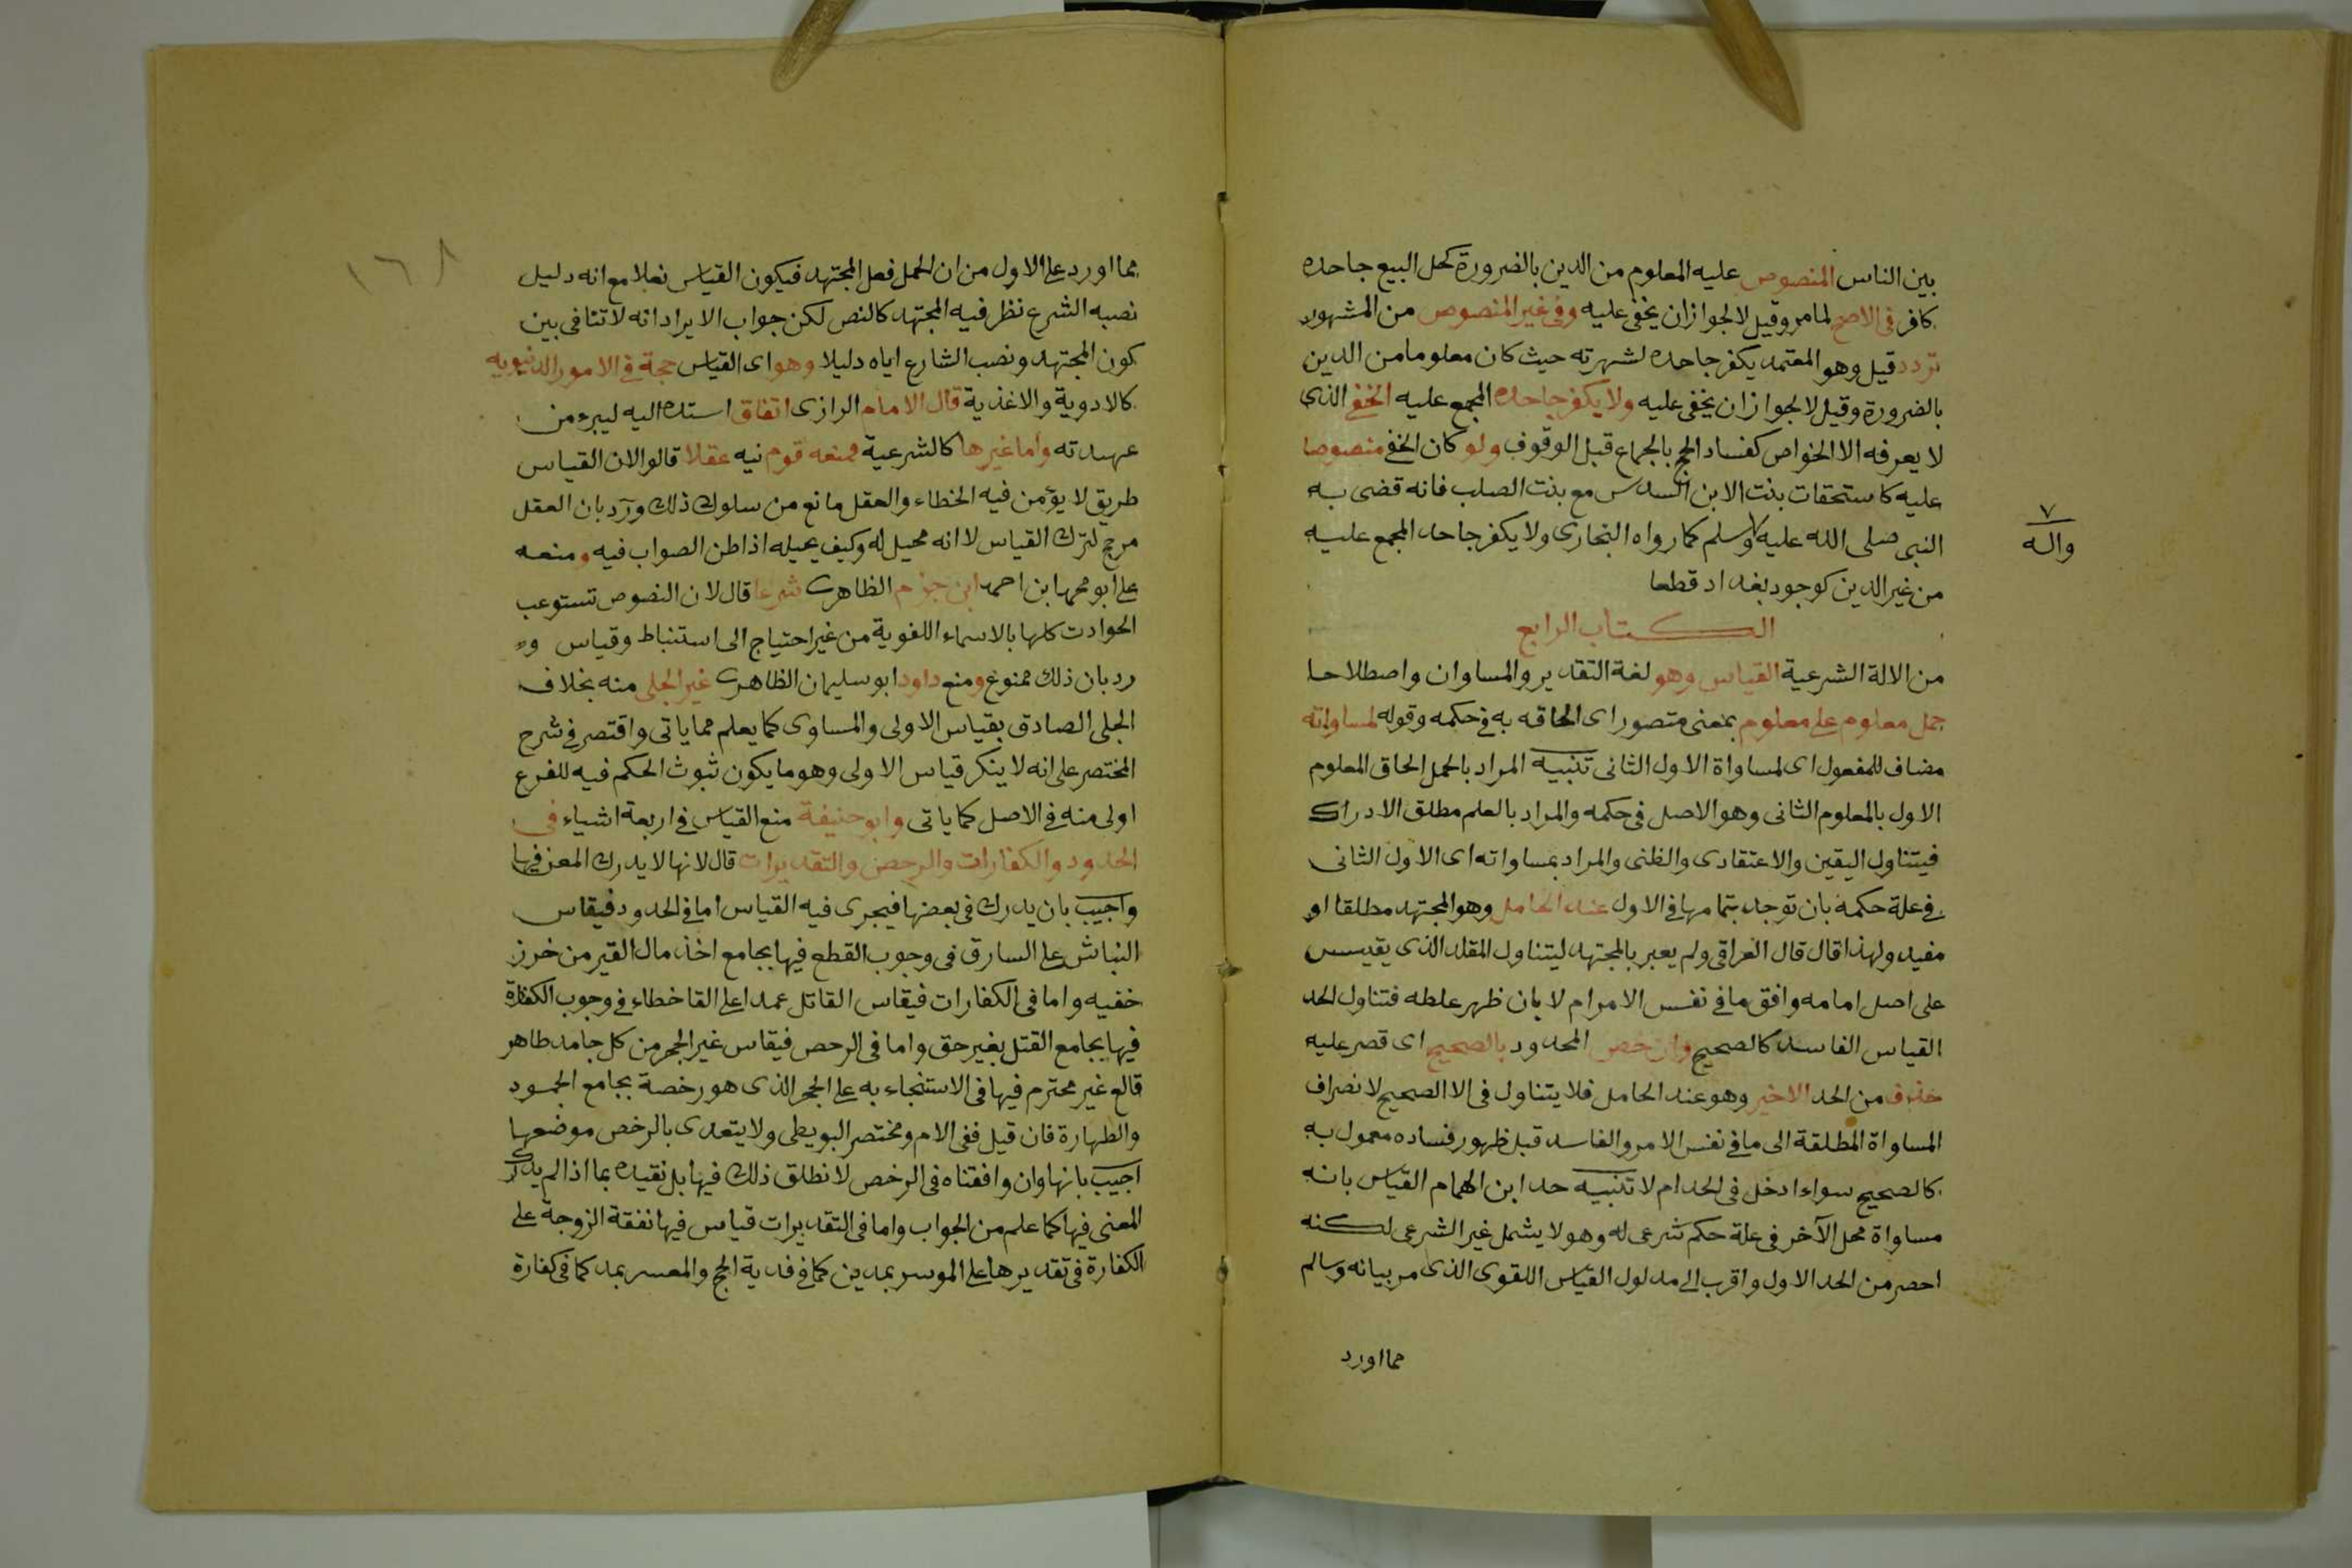 بين الناس المنصوص عليه المعلوم من الدين بالضرورة كحل البيع جاحده
كافر فى الاصح لما مر وقيل لا لجواز ان يخفى عليه وفى غير المنصوص من المشهور
تردد قيل وهو المعتمد يكفر جاحده لشهرته حيث كان معلوما من الدين
بالضرورة وقيل لا لجواز ان يخفى عليه ولا يكفر جاحده المجمع عليه الخفى الذى
لا يعرفه الا الخواص كفساد الحج بالجماع قبل الوقوف ولو كان الخفى منصوصا
عليه كاستحقات بنت الابن السدس مع بنت الصلب فانه قضى به
النبى صلى الله عليه وسلم كما رواه البخارى ولا يكفر جاحد المجمع عليه
٧
واله
من غير الدين كوجود بغداد قطعا
الكتاب الرابع
من الالة الشرعية القياس وهو لغة التقدير والمساوان واصطلاحا
حمل معلوم على معلوم بمعنى متصور اى الحاقه به فى حكمه وقوله لمساواته
مضاف للمفعول اى لمساواة الاول الثانى تنبيه المراد بالحمل الحاق المعلوم
الاول بالمعلوم الثانى وهو الاصل فى حكمه والمراد بالعلم مطلق الادراك
فيتناول اليقين والاعتقادى والظنى والمراد بمساواته اى الاول الثانى
فى علة حكمه بان توجد بتمامها فى الاول عند الحامل وهو المجتهد مطلقا او
مفيد ولهذا قال قال العراقى ولم يعبر بالمجتهد ليتناول المقلد الذى يقيس
على اصل امامه وافق ما فى نفس الامر ام لا بان ظهر غلطه فتناول الحد
القياس الفاسد كالصحيح وان خص المحدود بالصحيح اى قصر عليه
حذف من الحد الاخير وهو عند الحامل فلا يتناول فى الا الصحيح لانصراف
المساواة المطلقة الى ما فى نفس الامر والفاسد قبل ظهور فساده معمول به
كالصحيح سواء ادخل فى الحد ام لا تنبيه حد ابن الهمام القياس بانه
مساواة محل الآخر فى علة حكم شرعى له وهو لا يشمل غير الشرعى لكنه
احصر من الحد الاول واقرب الى مدلول القياس اللقوى الذى مر بيانه وسالم
مما اورد
١٦٨
مما اورد على الاول من ان الحمل فعل المجتهد فيكون القياس نعلا مع انه دليل
نصبه الشرع نظر فيه المجتهد كالنص لكن جواب الايراد انه لا تنافى بين
كون المجتهد ونصب الشارع اياه دليلا وهو اى القياس حجة فى الامور الدنيويه
كالادوية والاغذية قال الامام الرازى اتفاق استده اليه ليبرء من
عهدته واما غيرها كالشرعية فمنعه قوم نيه عقلا قالوا لان القياس
طريق لا يؤمن فيه الخطاء والعقل مانع من سلوك ذلك ورد بان العقل
مرجح لترك القياس لا انه محيل له وكيف يحيله اذا ظن الصواب فيه ومنعه
على ابو محمد ابن احمد ابن حزم الظاهرى شرعا قال لان النصوص تستوعب
الحوادت كلها بالاسماء اللغوية من غير احتياج الى استنباط وقياس و
رد بان ذلك ممنوع ومنع داود ابو سليمان الظاهرى غير الجلى منه بخلاف
الجلى الصادق بقياس الاولى والمساوى كما يعلم مما ياتى واقتصر فى شرح
المختصر على انه لا ينكر قياس الاولى وهو ما يكون ثبوث الحكم فيه للفرع
اولى منه فى الاصل كما ياتى وابو حنيفة منع القياس فى اربعة اشياء فى
الحدود والكفارات والرحص والتقديرات قال لانها لا يدرك المعنى فيها
واجيب بان يدرك فى بعضها فيجرى فيه القياس اما فى الحدود فيقاس
النباش على السارق فى وجوب القطع فيها بجامع اخذ مال القير من خرز
خفيه واما فى الكفارات فيقاس القاتل عمدا على القا خطاء فى وجوب الكفارة
فيها بجامع القتل بغير حق واما فى الرحص فيقاس غير الحجر من كل جامد طاهر
قالع غير محترم فيها فى الاستنجاء به على الحجر الذى هو رخصة بجامع الجمود
والطهارة فان قيل ففى الام ومختصر البويطى ولا يتعدى بالرخص موضعها
اجيب بانها وان وافقناه فى الرخص لا نطلق ذلك فيها بل نقيده بما اذا لم يدرك
المعنى فيها كما علم من الجواب واما فى التقديرات قياس فيها نفقة الزوجة على
الكفارة فى تقديرها على الموسر بمدين كما فى فدية الحج والمعسر بمد كما فى كفارة